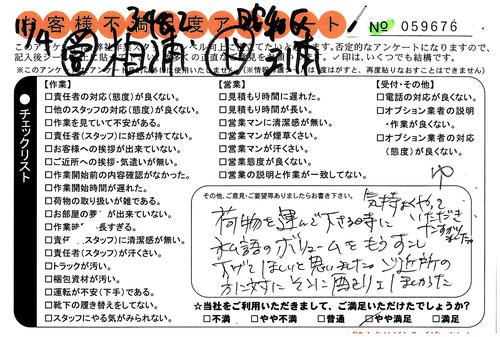 お客様不満足度アンケート
No 059676
記入後シールを
否定的なアンケートになりますので、
✓印は、いくつでも結構です。
(※情報保護シールは一度はがすと、再度貼りなおすことはできません)
●チェックリスト
【作業】
□責任者の対応(態度)が良くない。
□他のスタッフの対応(態度)が良くない。
□作業を見ていて不安がある。
□責任者(スタッフ)に好感が持てない。
□お客様への挨拶が出来ていない。
□ご近所への挨拶・気遣いが無い。
□作業開始前の内容確認がなかった。
□作業開始時間が遅れた。
□荷物の取り扱いが雑である。
□お部屋の 出来ていない。
□作業 長すぎる。
□責 スタッフ)に清潔感が無い。
□責任者(スタッフ)が汗くさい。
□トラックが汚い。
□梱包資材が汚い。
□運転が不安(下手)である。
□靴下の履き替えをしてない。
□スタッフにやる気がみられない。
【営業】
□見積り時間に遅れた。
□見積り時間が長い。
□営業マンに清潔感が無い。
□営業マンが煙草くさい。
□営業マンが汗くさい。
□営業態度が良くない。
□営業の説明と作業が一致してない。
【受付・その他】
□電話の対応が良くない。
□オプション業者の説明
・作業が良くない。
□オプション業者の対応
(態度)が良くない。
その他、ご意見・ご要望等ありましたらお書き下さい。
気持よくやって
いただき
荷物を運んで下さる時に
私語のボリュームをもう少し
下げてほしいと思いました ご近所の
方に対して
☆当社をご利用いただきまして、ご満足いただけたでしょうか?
□不満 □やや不満 □普通 □やや満足 □満足